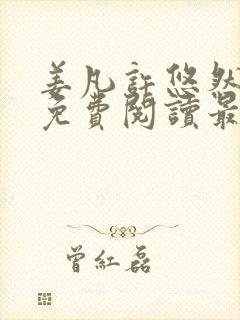 姜凡許悠然
免費閱讀最
曾紅磊